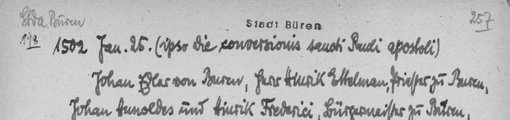 Stda Büren
Stadt Büren
257
198
1502 Jan. 25. (ipso die conversionis sancti Pauli apostoli)
Johan Edler von Buren, Herr Hinrik Ettelman, Priester zu Buren,
Johan Arnoldes und Hinrik Frederici, Bürgermeister zu Büren,